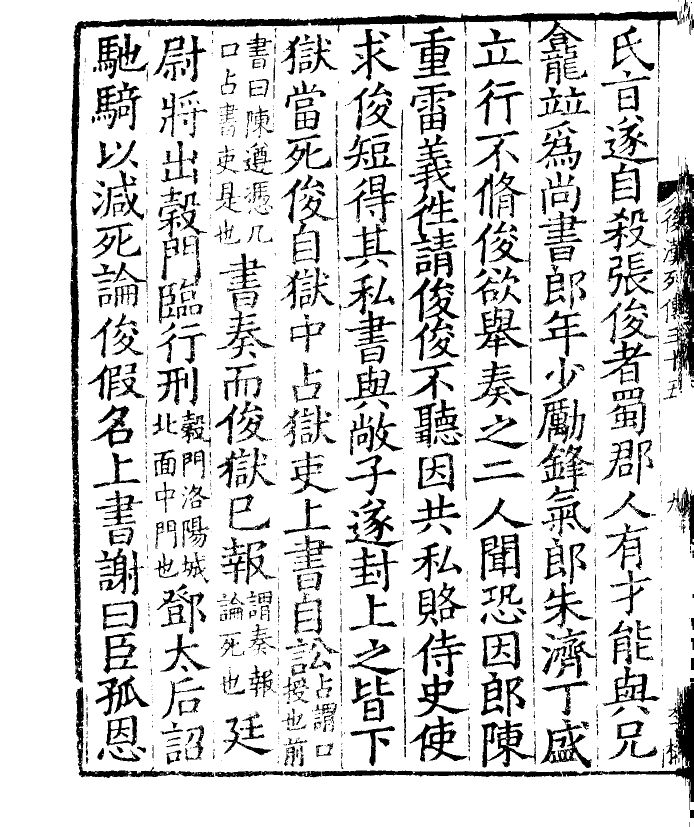 後漢列傳三十五
九
氏言遂自殺張俊者蜀郡人有才能與兄
龕竝爲尚書郎年少勵鋒氣郎朱濟丁盛
立行不脩俊欲舉奏之二人聞恐因郎陳
重雷義徃請俊俊不聽因共私賂侍史使
求俊短得其私書與敞子遂封上之皆下
獄當死俊自獄中占獄吏上書自訟占謂口授也前
書曰陳遵憑几口占書吏是也書奏而俊獄已報謂奏報論死也廷
尉將出穀門臨行刑穀門洛陽城北面中門也鄧太后詔
馳騎以減死論俊假名上書謝曰臣孤恩